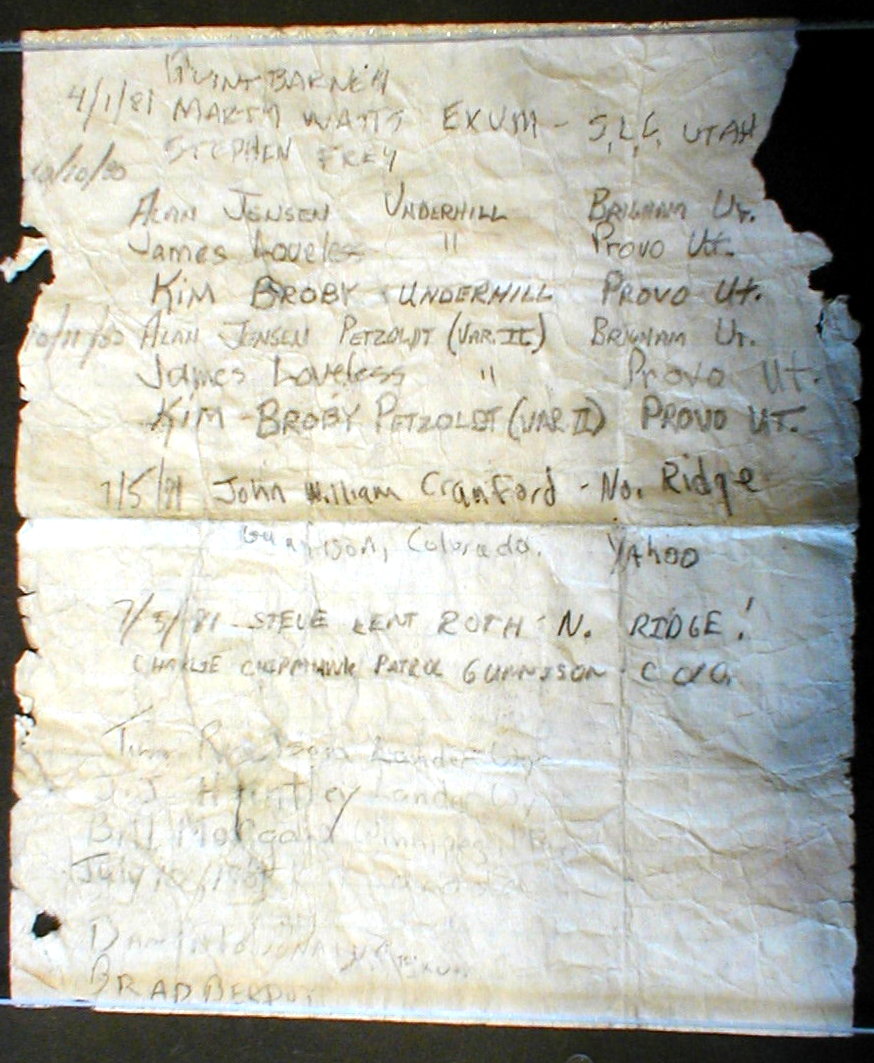 BARNEY
4/1/81 MARTY WATTS EXUM - S.L.C. UTAH
STEPHEN FREY
10/10/80
ALAN JENSEN UNDERHILL BRIGHAM UT.
James Loveless " Provo Ut.
KIM BROBY UNDERHILL PROVO Ut.
10/11/80 ALAN JENSEN PETZOLDT (VAR. II) BRIGHAM UT.
James Loveless " Provo Ut.
KIM BROBY PETZOLDT (VAR II) PROVO UT.
7/5/81 John William Cranford - No. Ridge
Gunnison, Colorado. YAhoo
7/5/81 - STEVE KENT ROTH - N. RIDGE!
CHARLIE CHIPMUNK PATROL GUNNISON COLO.
Tim Lander Wy
J.J. Huntley Lander Wy
Bill Morgan Winnipeg
July Canada
BRAD